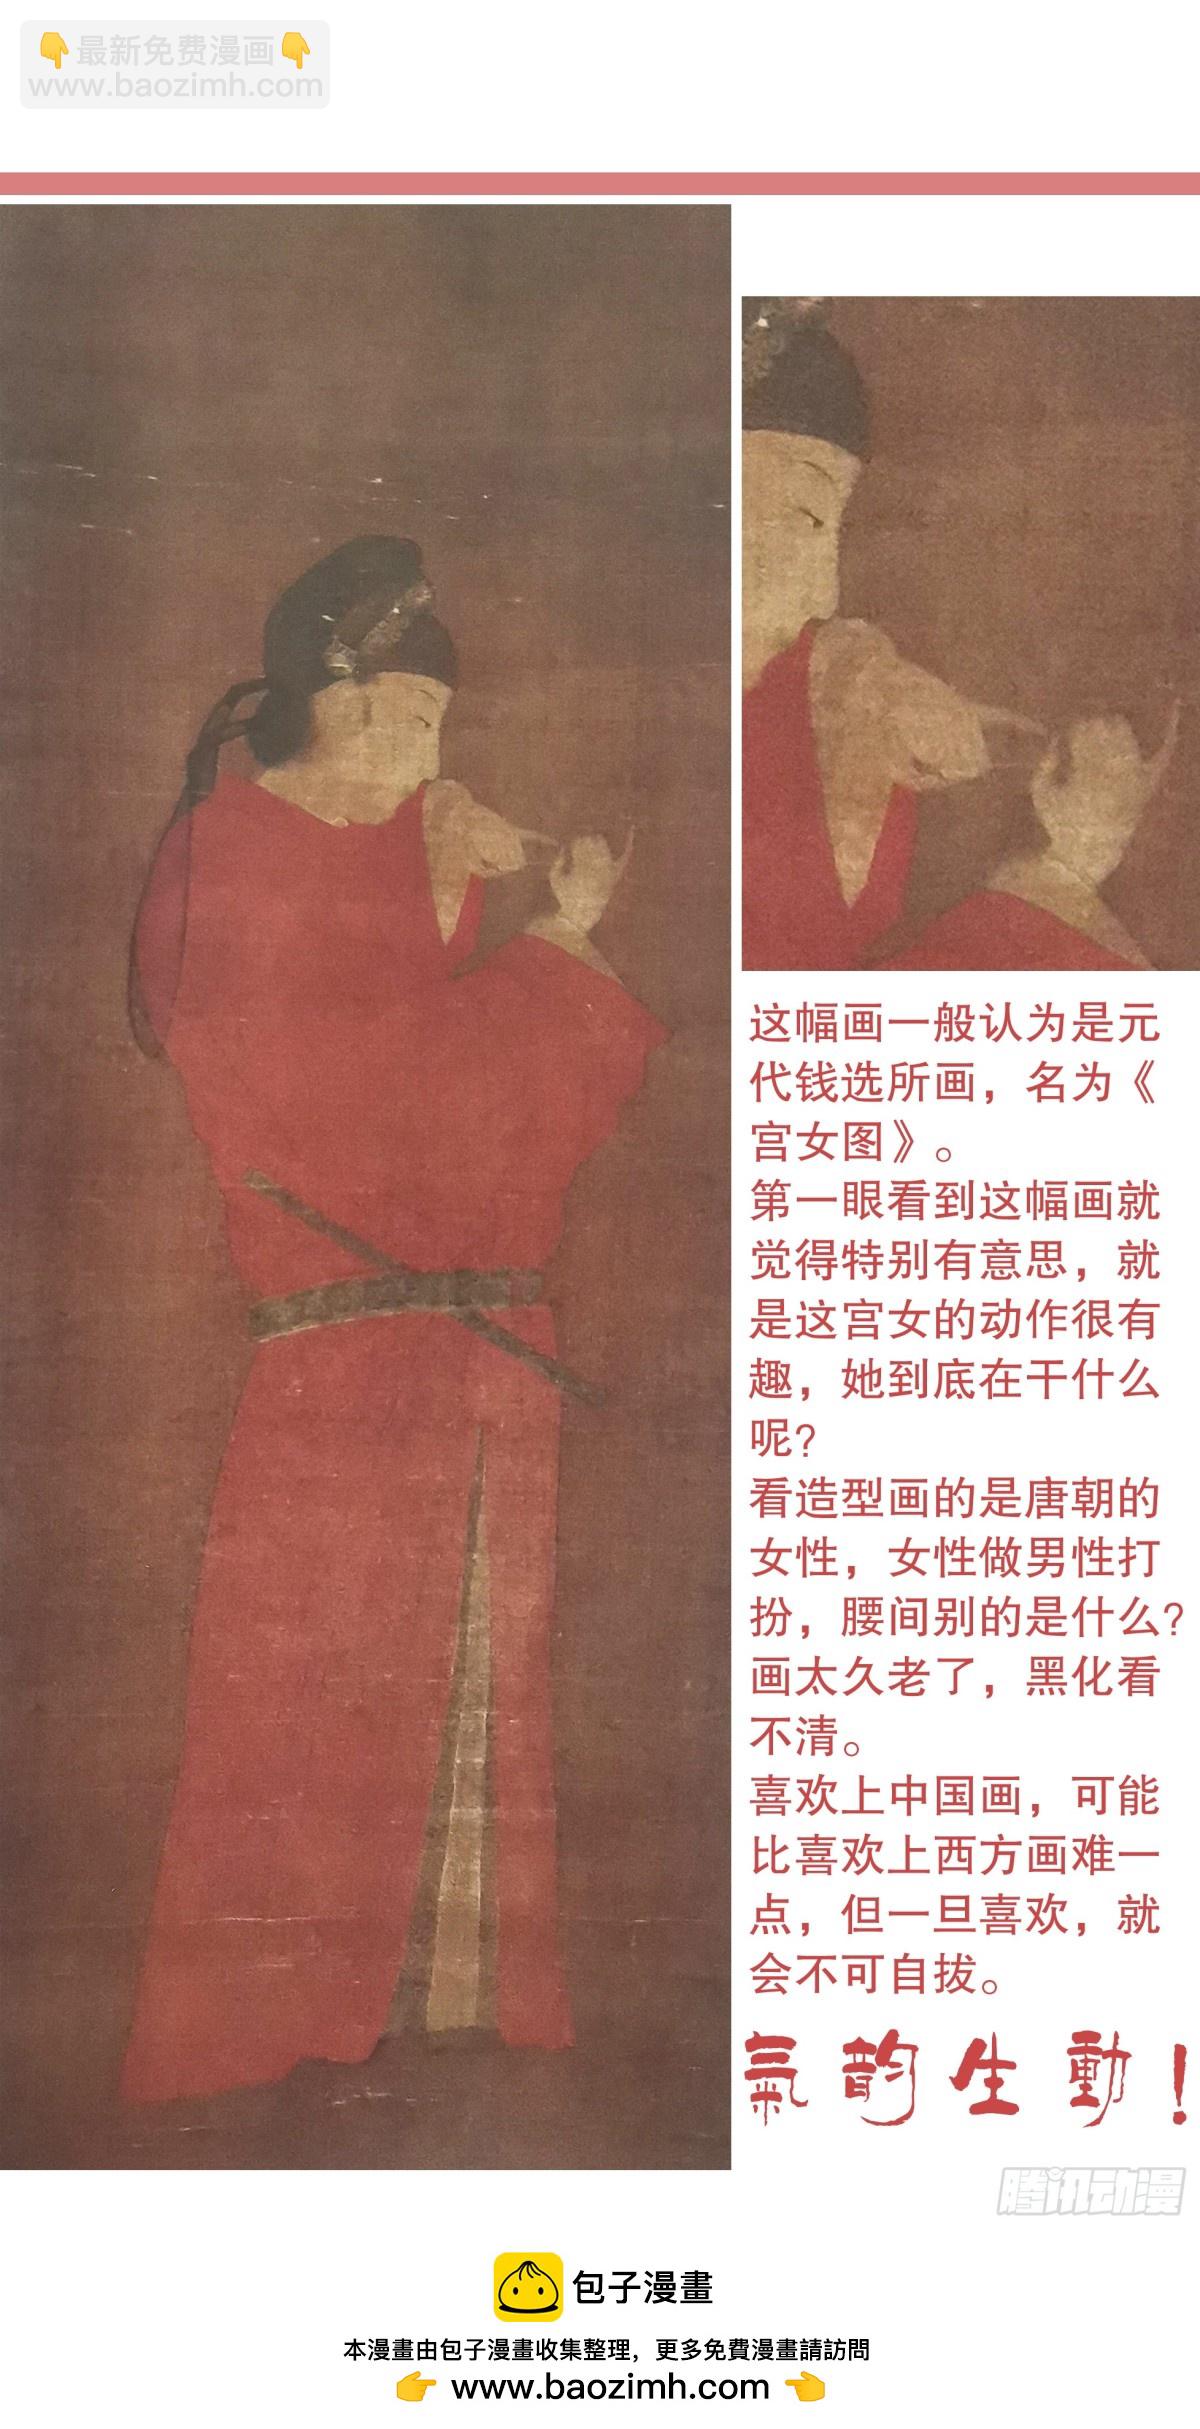 👇最新免费漫画👇
www.baozimh.com
这幅画一般认为是元
代钱选所画，名为《
宫女图》。
第一眼看到这幅画就
觉得特别有意思，就
是这宫女的动作很有
趣，她到底在干什么
呢？
看造型画的是唐朝的
女性，女性做男性打
扮，腰间别的是什么？
画太久老了，黑化看
不清。
喜欢上中国画，可能
比喜欢上西方画难一
点，但一旦喜欢，就
会不可自拔。
氣韵生動！
腾讯动漫
包子漫畫
本漫畫由包子漫畫收集整理，更多免費漫畫請訪問
👉 www.baozimh.com 👈